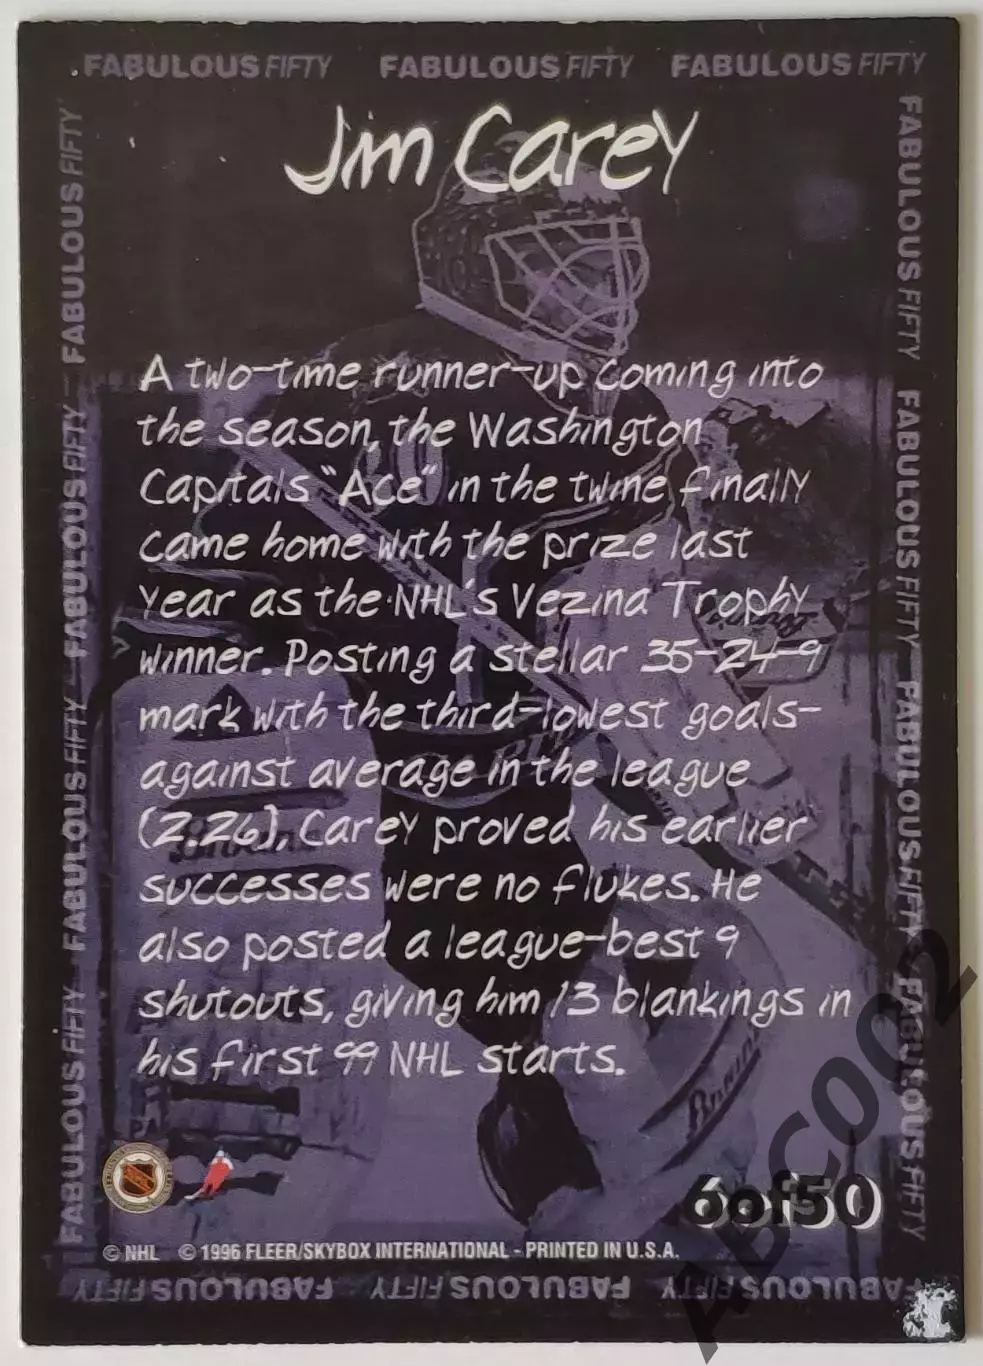 FABULOUS FIFTY FABULOUS FIFTY FABULOUS FIFTY
Jim Carey
A two-time runner-up coming into
the season, the Washington
Capitals "Ace" in the twine finally
came home with the prize last
year as the NHL's Vezina Trophy
winner. Posting a stellar 35-24-9
mark with the third-lowest goals-
against average in the league
(2.26), Carey proved his earlier
successes were no flukes. He
also posted a league-best 9
shutouts, giving him 13 blankings in
his first 99 NHL starts.
6 of 50
© NHL © 1996 FLEER/SKYBOX INTERNATIONAL - PRINTED IN U.S.A.
FABULOUS FIFTY FABULOUS FIFTY FABULOUS FIFTY
FABULOUS FIFTY FABULOUS FIFTY FABULOUS FIFTY FABULOUS FIFTY
FABULOUS FIFTY FABULOUS FIFTY FABULOUS FIFTY FABULOUS FIFTY
ABC002